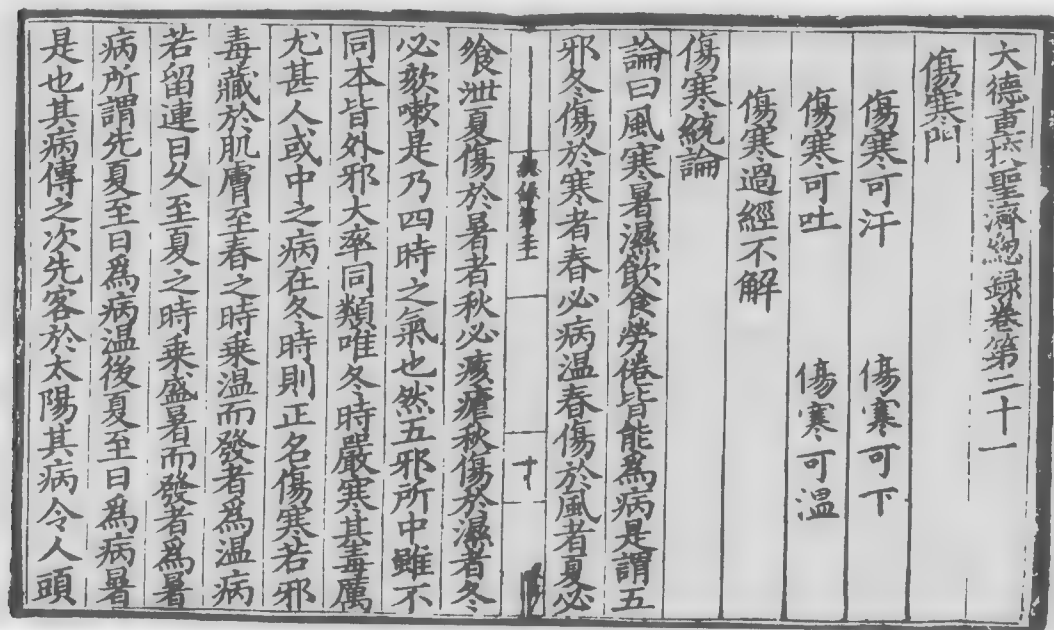 大德重校聖濟總録卷第二十一
傷寒門
傷寒可汗　傷寒可下
傷寒可吐　傷寒可温
傷寒過經不解
傷寒統論
論曰風寒暑濕飲食勞倦皆能爲病是謂五
邪冬傷於寒者春必病温春傷於風者夏必
飱泄夏傷於暑者秋必痎瘧秋傷於濕者冬
必欬嗽是乃四時之氣也然五邪所中雖不
同本皆外邪大率同類唯冬時嚴寒其毒厲
尤甚人或中之病在冬時則正名傷寒若邪
毒藏於肌膚至春之時乗温而發者爲温病
若留連日久至夏之時乗盛暑而發者爲暑
病所謂先夏至日爲病温後夏至日爲病暑
是也其病傳之次先客於太陽其病令人頭